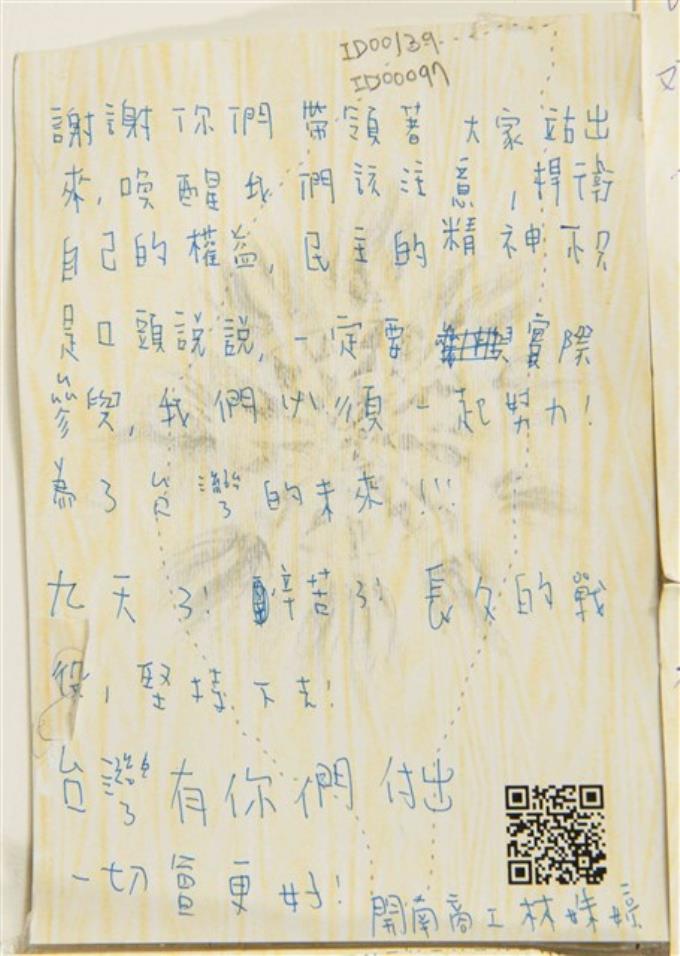 ID00139
ID00097
謝謝你們帶領著大家站出
來,喚醒我們該注意,捍衛
自己的權益,民主的精神不只
是口頭說說,一定要實際
參與,我們必須一起努力!
為了台灣的未來!!!
九天了!辛苦了!長久的戰
役,堅持下去!
台灣有你們付出
一切會更好!
開南商工林姝婷